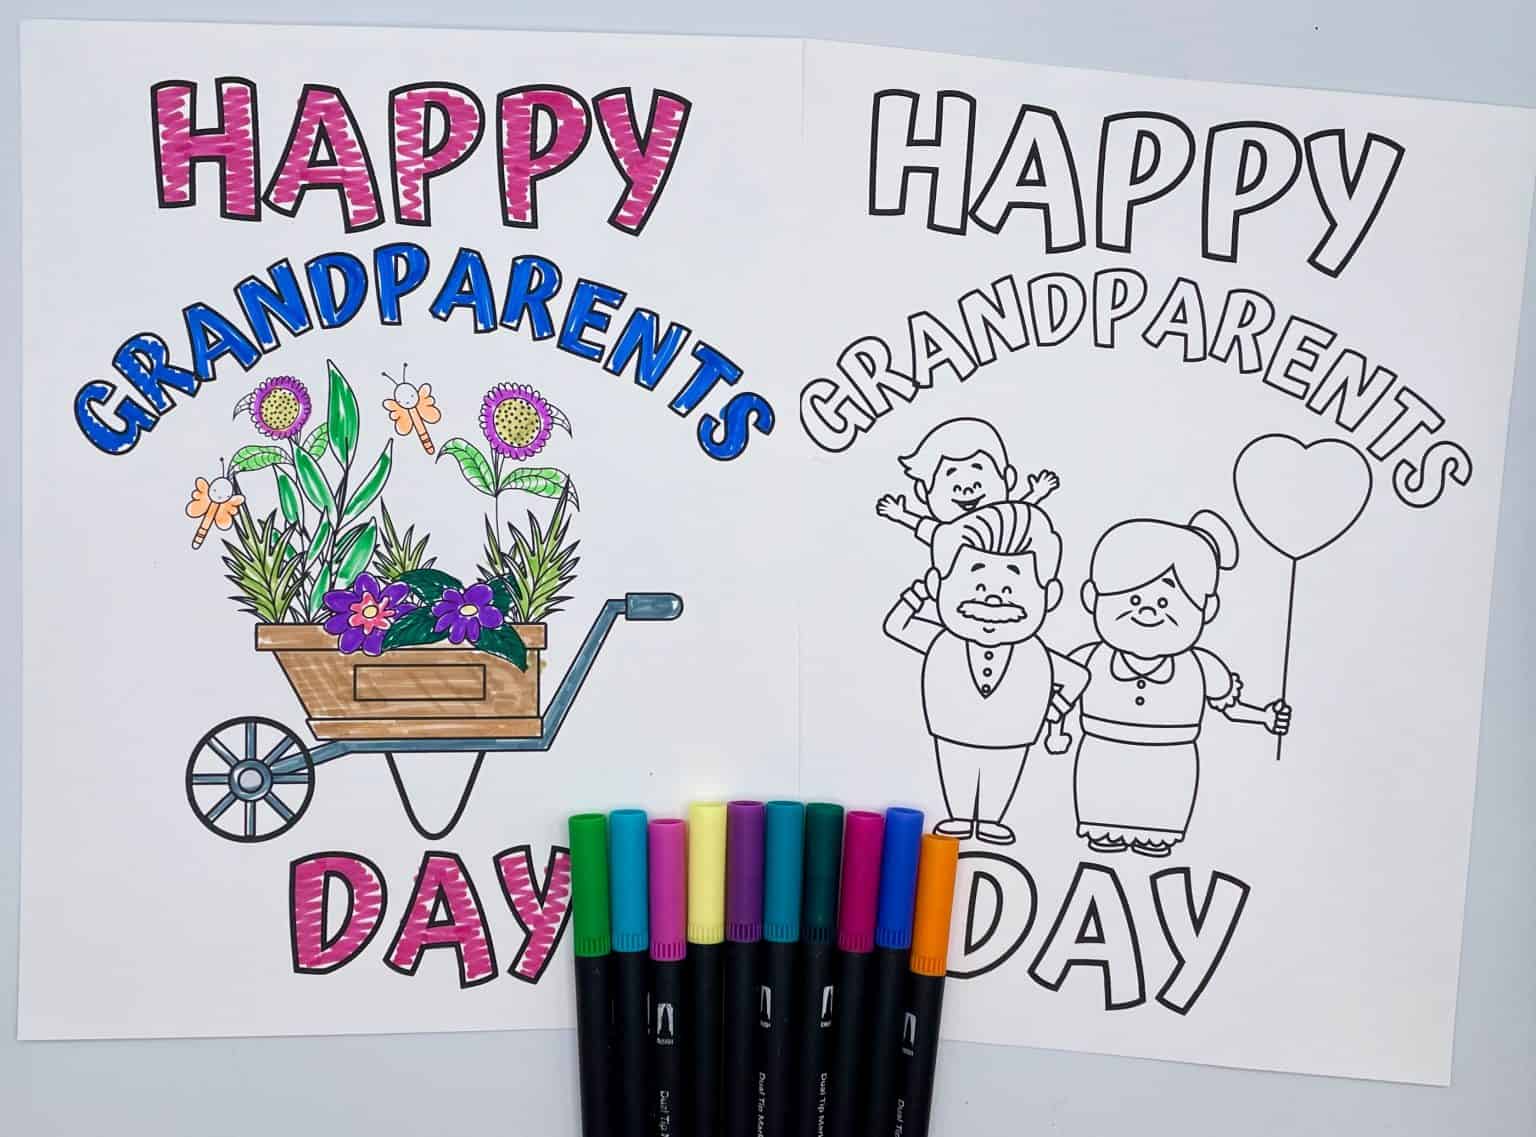 HAPPY
GRANDPARENTS
DAY
HAPPY
GRANDPARENTS
DAY
Dual Tip
Dual Tip Mark
Dual Tip Mark
Dual Tip